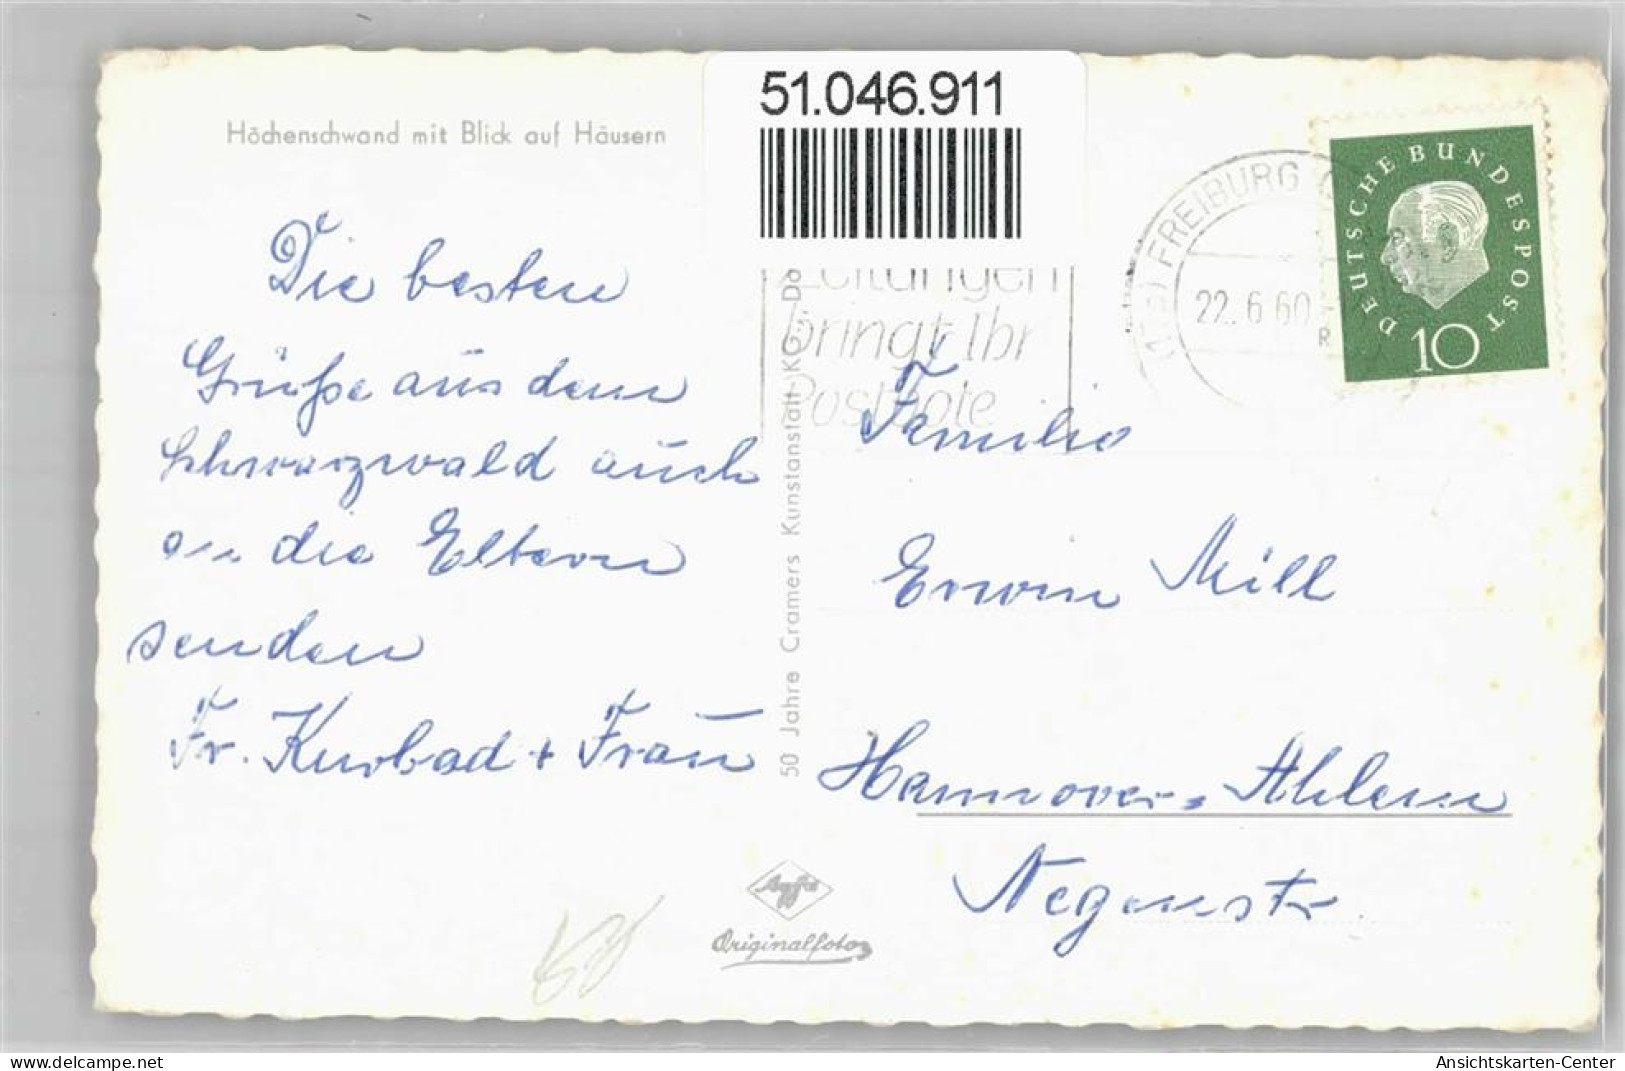 51.046.911
Höchenschwand mit Blick auf Häusern
Die besten
Grüße aus dem
Schwarzwald auch
an die Eltern
senden
Fr. Kurbad + Frau
50 Jahre Cramers Kunstanstalt KG., Do
Zeitungen
bringt Ihr
Postbote
FREIBURG
22.6.60
DEUTSCHE BUNDESPOST
10
Familie
Erwin Mill
Hannover-Ahlem
Negenstr
Agfa
Originalfoto
delcampe.net
Ansichtskarten-Center